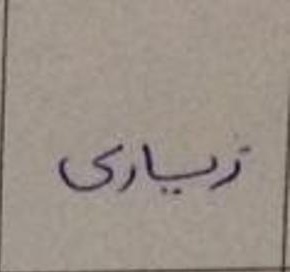 زیساری